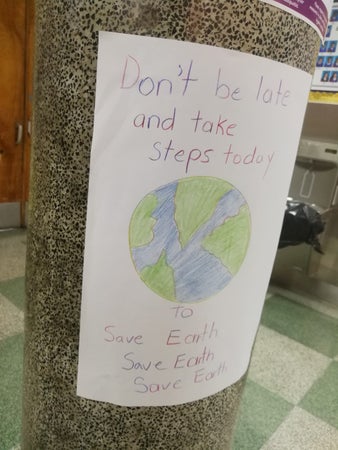 Don't be late
and take
steps today
To
Save Earth
Save Earth
Save Earth